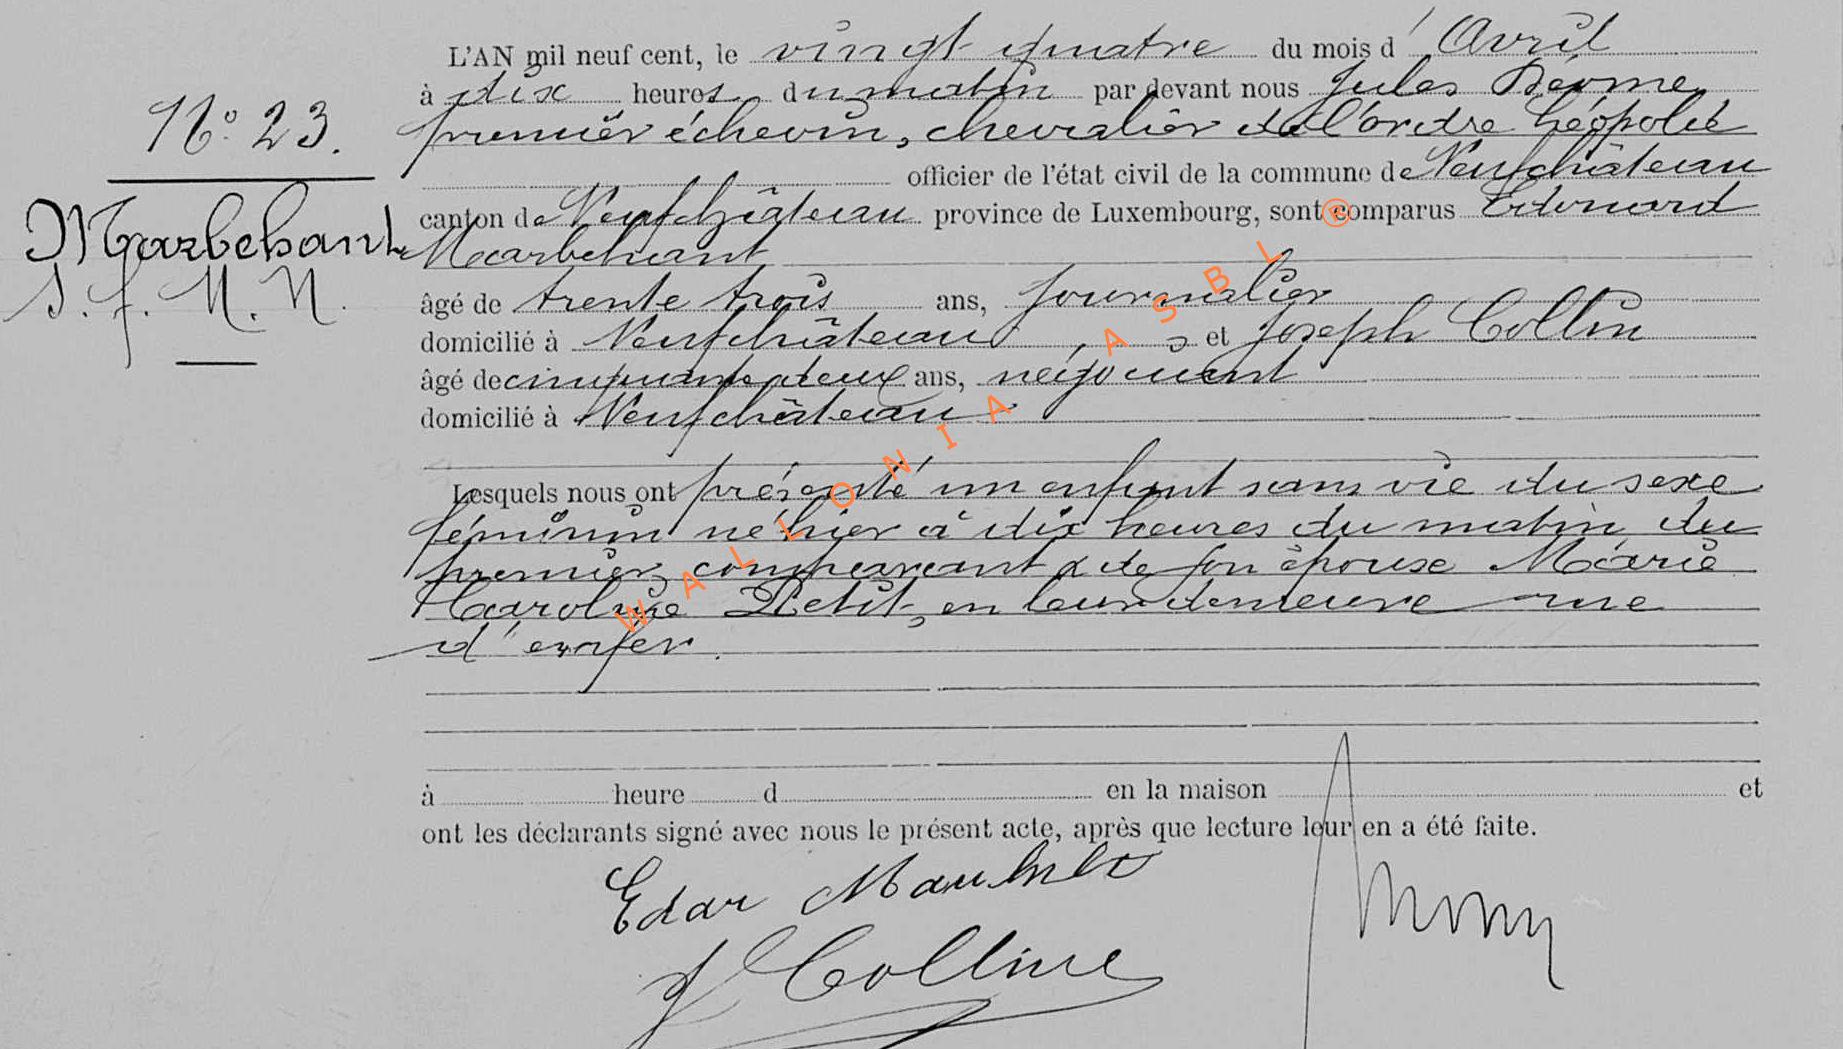 L'AN mil neuf cent, le vingt quatre du mois d'Avril
à dix heures du matin par devant nous Jules
N° 23.
premier échevin, chevalier de l'ordre Léopold
officier de l'état civil de la commune de Neufchâteau
Marbehant
canton de Neufchâteau province de Luxembourg, sont comparus Edouard
Marbehant
S. f. M. N.
âgé de trente trois ans, journalier
domicilié à Neufchâteau, et Joseph Collin
âgé de cinquante deux ans, négociant
domicilié à Neufchâteau
Lesquels nous ont présenté un enfant sans vie du sexe
féminin né hier à dix heures du matin du
premier comparant & de son épouse Marie
Caroline Petit, en leur demeure rue
d'enfer.
à heure d en la maison et
ont les déclarants signé avec nous le présent acte, après que lecture leur en a été faite.
J Colline
WALLONIA ASBL ®